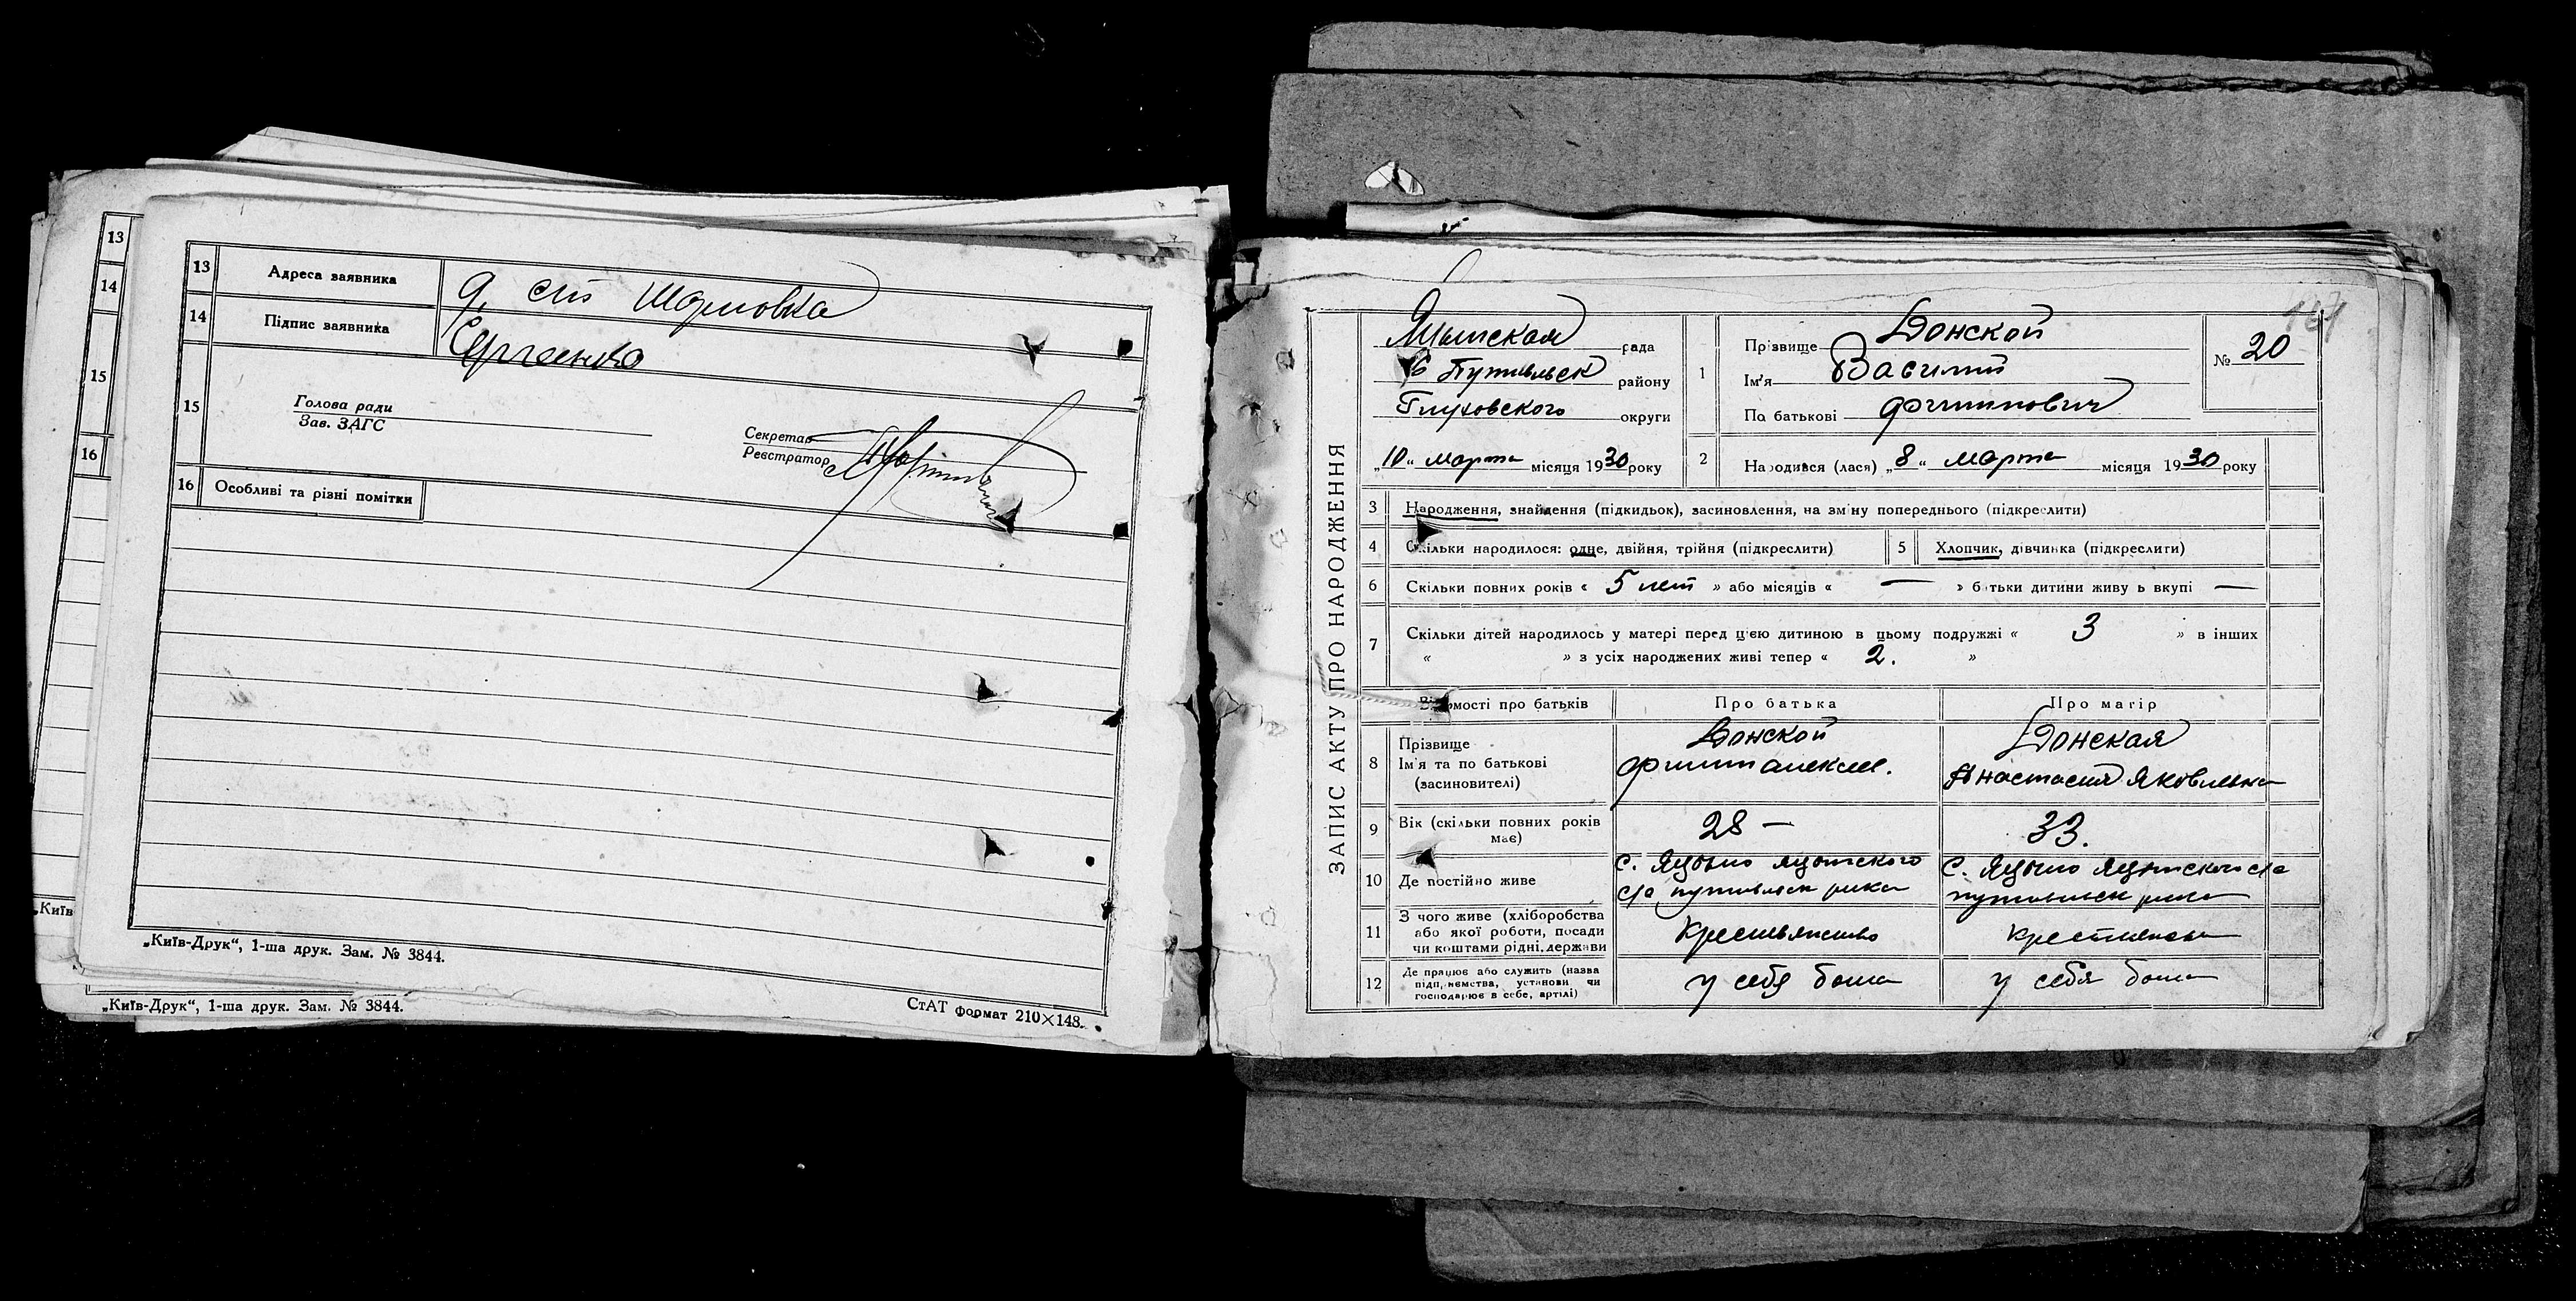 13
14
15
16
„Київ
13 Адреса заявника
14 Підпис заявника
Сергеенко
15
Голова ради
Зав. ЗАГС
Секретар
Реєстратор
16 Особливі та різні помітки
„Київ-Друк“, 1-ша друк. Зам. № 3844.
„Київ-Друк“, 1-ша друк. Зам. № 3844.
СтАТ формат 210×148.
ЗАПИС АКТУ ПРО НАРОДЖЕННЯ
рада
Путивльск району
Глуховского округи
„10“ марта місяця 1930 року
1 Прізвище Донской
Ім'я Василий
По батькові Филиппович
№ 20
2 Народився (лася) „8“ марта місяця 1930 року
3 Народження, знайдення (підкидьок), засиновлення, на зміну попереднього (підкреслити)
4 Скільки народилося: одне, двійня, трійня (підкреслити)
5 Хлопчик, дівчинка (підкреслити)
6 Скільки повних років « 5 лет » або місяців « — » батьки дитини живуть вкупі —
7 Скільки дітей народилось у матері перед цією дитиною в цьому подружжі « 3 » в інших
« » з усіх народжених живі тепер « 2. »
Відомості про батьків Про батька Про матір
8 Прізвище
Ім'я та по батькові
(засиновителі)
Донской
Филип Алексее.
Донская
Анастасия Яковлевна
9 Вік (скільки повних років
має)
28 —
33.
10 Де постійно живе
с. Яцыно Яцынского
с/с путивльск р-ка
с. Яцыно Яцынского с/с
путивльск р-ка
11 З чого живе (хліборобства
або якої роботи, посади
чи коштами рідні, держави
Крестьянство
крестьянство
12 Де працює або служить (назва
підприємства, установи чи
господарює в себе, артілі)
у себя дома
у себя дома